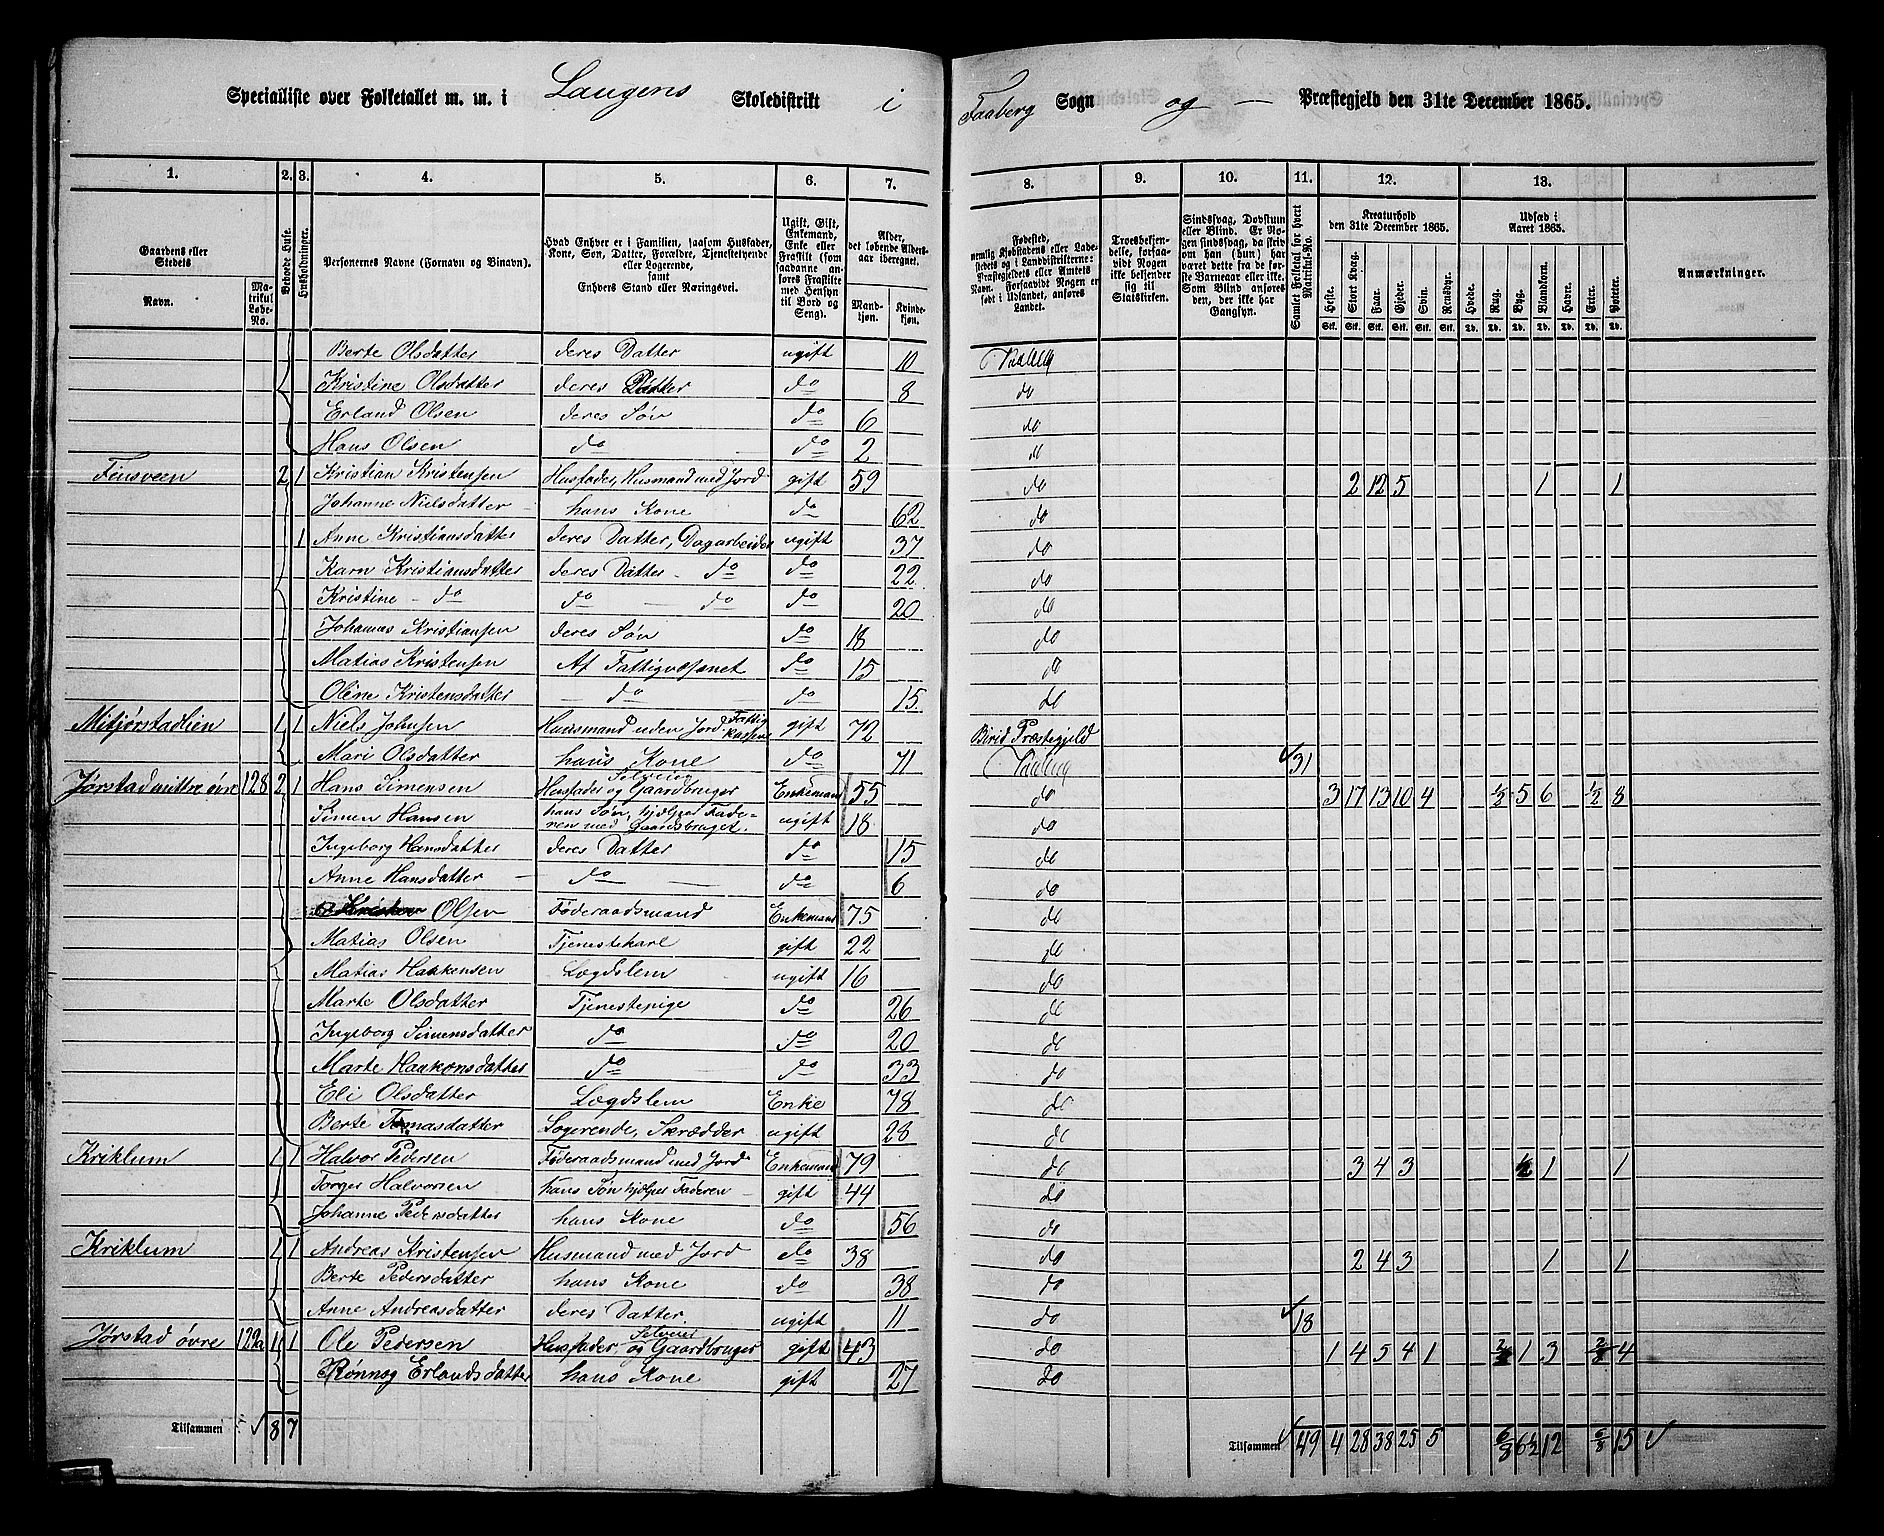 Specialliste over Folketallet m. m. i Laugens Skoledistrikt i Faaberg Sogn og — Præstegjeld den 31te December 1865.
1. 2. 3. 4. 5. 6. 7. 8. 9. 10. 11. 12. 13.
Gaardens eller Stedets
Navn.
Matrikul Løbe-No.
Beboede Huse.
Husholdninger.
Personernes Navne (Fornavn og Binavn).
Hvad Enhver er i Familien, saasom Husfader, Kone, Søn, Datter, Forældre, Tjenestetyende eller Logerende, samt Enhvers Stand eller Næringsvei.
Ugift, Gift, Enkemand, Enke eller Fraskilt (som saadanne anføres Fraskilte med Hensyn til Bord og Seng).
Alder, det løbende Alders-aar iberegnet.
Mandkjøn. Kvindekjøn.
Fødested, nemlig Kjøbstadens eller Ladestedets og i Landdistrikterne: Præstegjeldets eller Amtets Navn. Forsaavidt Nogen er født i Udlandet, anføres Landet.
Troesbekjendelse, forsaavidt Nogen ikke bekjender sig til Statskirken.
Sindssvag, Døvstum eller Blind. Er Nogen sindssvag, da skriv om han (hun) har været dette fra de første Barneaar eller ikke. Som Blind anføres den, der ikke har Gangsyn.
Samlet Folketal for hvert Matrikul-No.
Kreaturhold den 31te December 1865.
Heste. Stort Kvæg. Faar. Gjeder. Svin. Rensdyr.
Udsæd i Aaret 1865.
Hvede. Rug. Byg. Blandkorn. Havre. Erter. Poteter.
Anmærkninger.
Berte Olsdatter deres Datter ugift 10 Faaberg
Kristine Olsdatter deres Datter do 8 do
Erland Olsen deres Søn do 6 do
Hans Olsen do do 2 do
Finsveen 2 1 Kristian Kristensen Husfader, Husmand med Jord gift 59 do 2 12 5 1 1
Johanne Nielsdatter hans Kone do 62 do
1 Anne Kristiansdatter deres Datter, Dagarbeider ugift 37 do
Karn Kristiansdatter deres Datter - do do 22 do
Kristine - do do — do do 20 do
Johannes Kristiansen deres Søn do 18 do
Matias Kristensen Af Fattigvæsenet do 15 do
Oline Kristensdatter — do do 15 do
Mitjørstadlien 1 1 Niels Johnsen Huusmand uden Jord. Fattig Kassen gift 72 Birid Præstegjeld
Mari Olsdatter hans Kone do 71 Faaberg 31
Jørstad mittre øvre 128 2 1 Hans Simensen Husfader og Selveier Gaardbruger Enkemand 55 do 3 17 13 10 4 1/2 5 6 1/2 8
Simen Hansen hans Søn, hjælper Faderen med Gaardsbruget. ugift 18 do
Ingeborg Hansdatter deres Datter do 15 do
Anne Hansdatter — do — do 6 do
Olsen Føderaadsmand Enkemand 75 do
Matias Olsen Tjenestekarl gift 22 do
Matias Haakensen Lægdslem ugift 16 do
Marte Olsdatter Tjenestepige do 26 do
Ingeborg Simensdatter do do 20 do
Marte Haakonsdatter do do 33 do
Eli Olsdatter Lægdslem Enke 78 do
Berte Tomasdatter Logerende, Skrædder ugift 28 do
Kriklum 1 1 Halvor Pedersen Føderaadsmand med Jord Enkemand 79 do 3 4 3 1 1
Torger Halvorsen hans Søn hjelper Faderen gift 44 do
Johanne Pedersdatter hans Kone do 56 do
Kriklum 1 1 Andreas Kristensen Husmand med Jord do 38 do 2 4 3 1 1
Berte Pedersdatter hans Kone do 38 do
Anne Andreasdatter deres Datter. ugift 11 do 18
Jørstad øvre 122a 1 1 Ole Pedersen Husfader, og Selveier Gaardbruger gift 43 do 1 4 5 4 1 1 3 2/8 4
Rønnog Erlandsdatter hans Kone gift 27 do
Tilsammen 8 7 Tilsammen 49 4 28 38 25 5 6/8 6 1/2 12 6/8 15